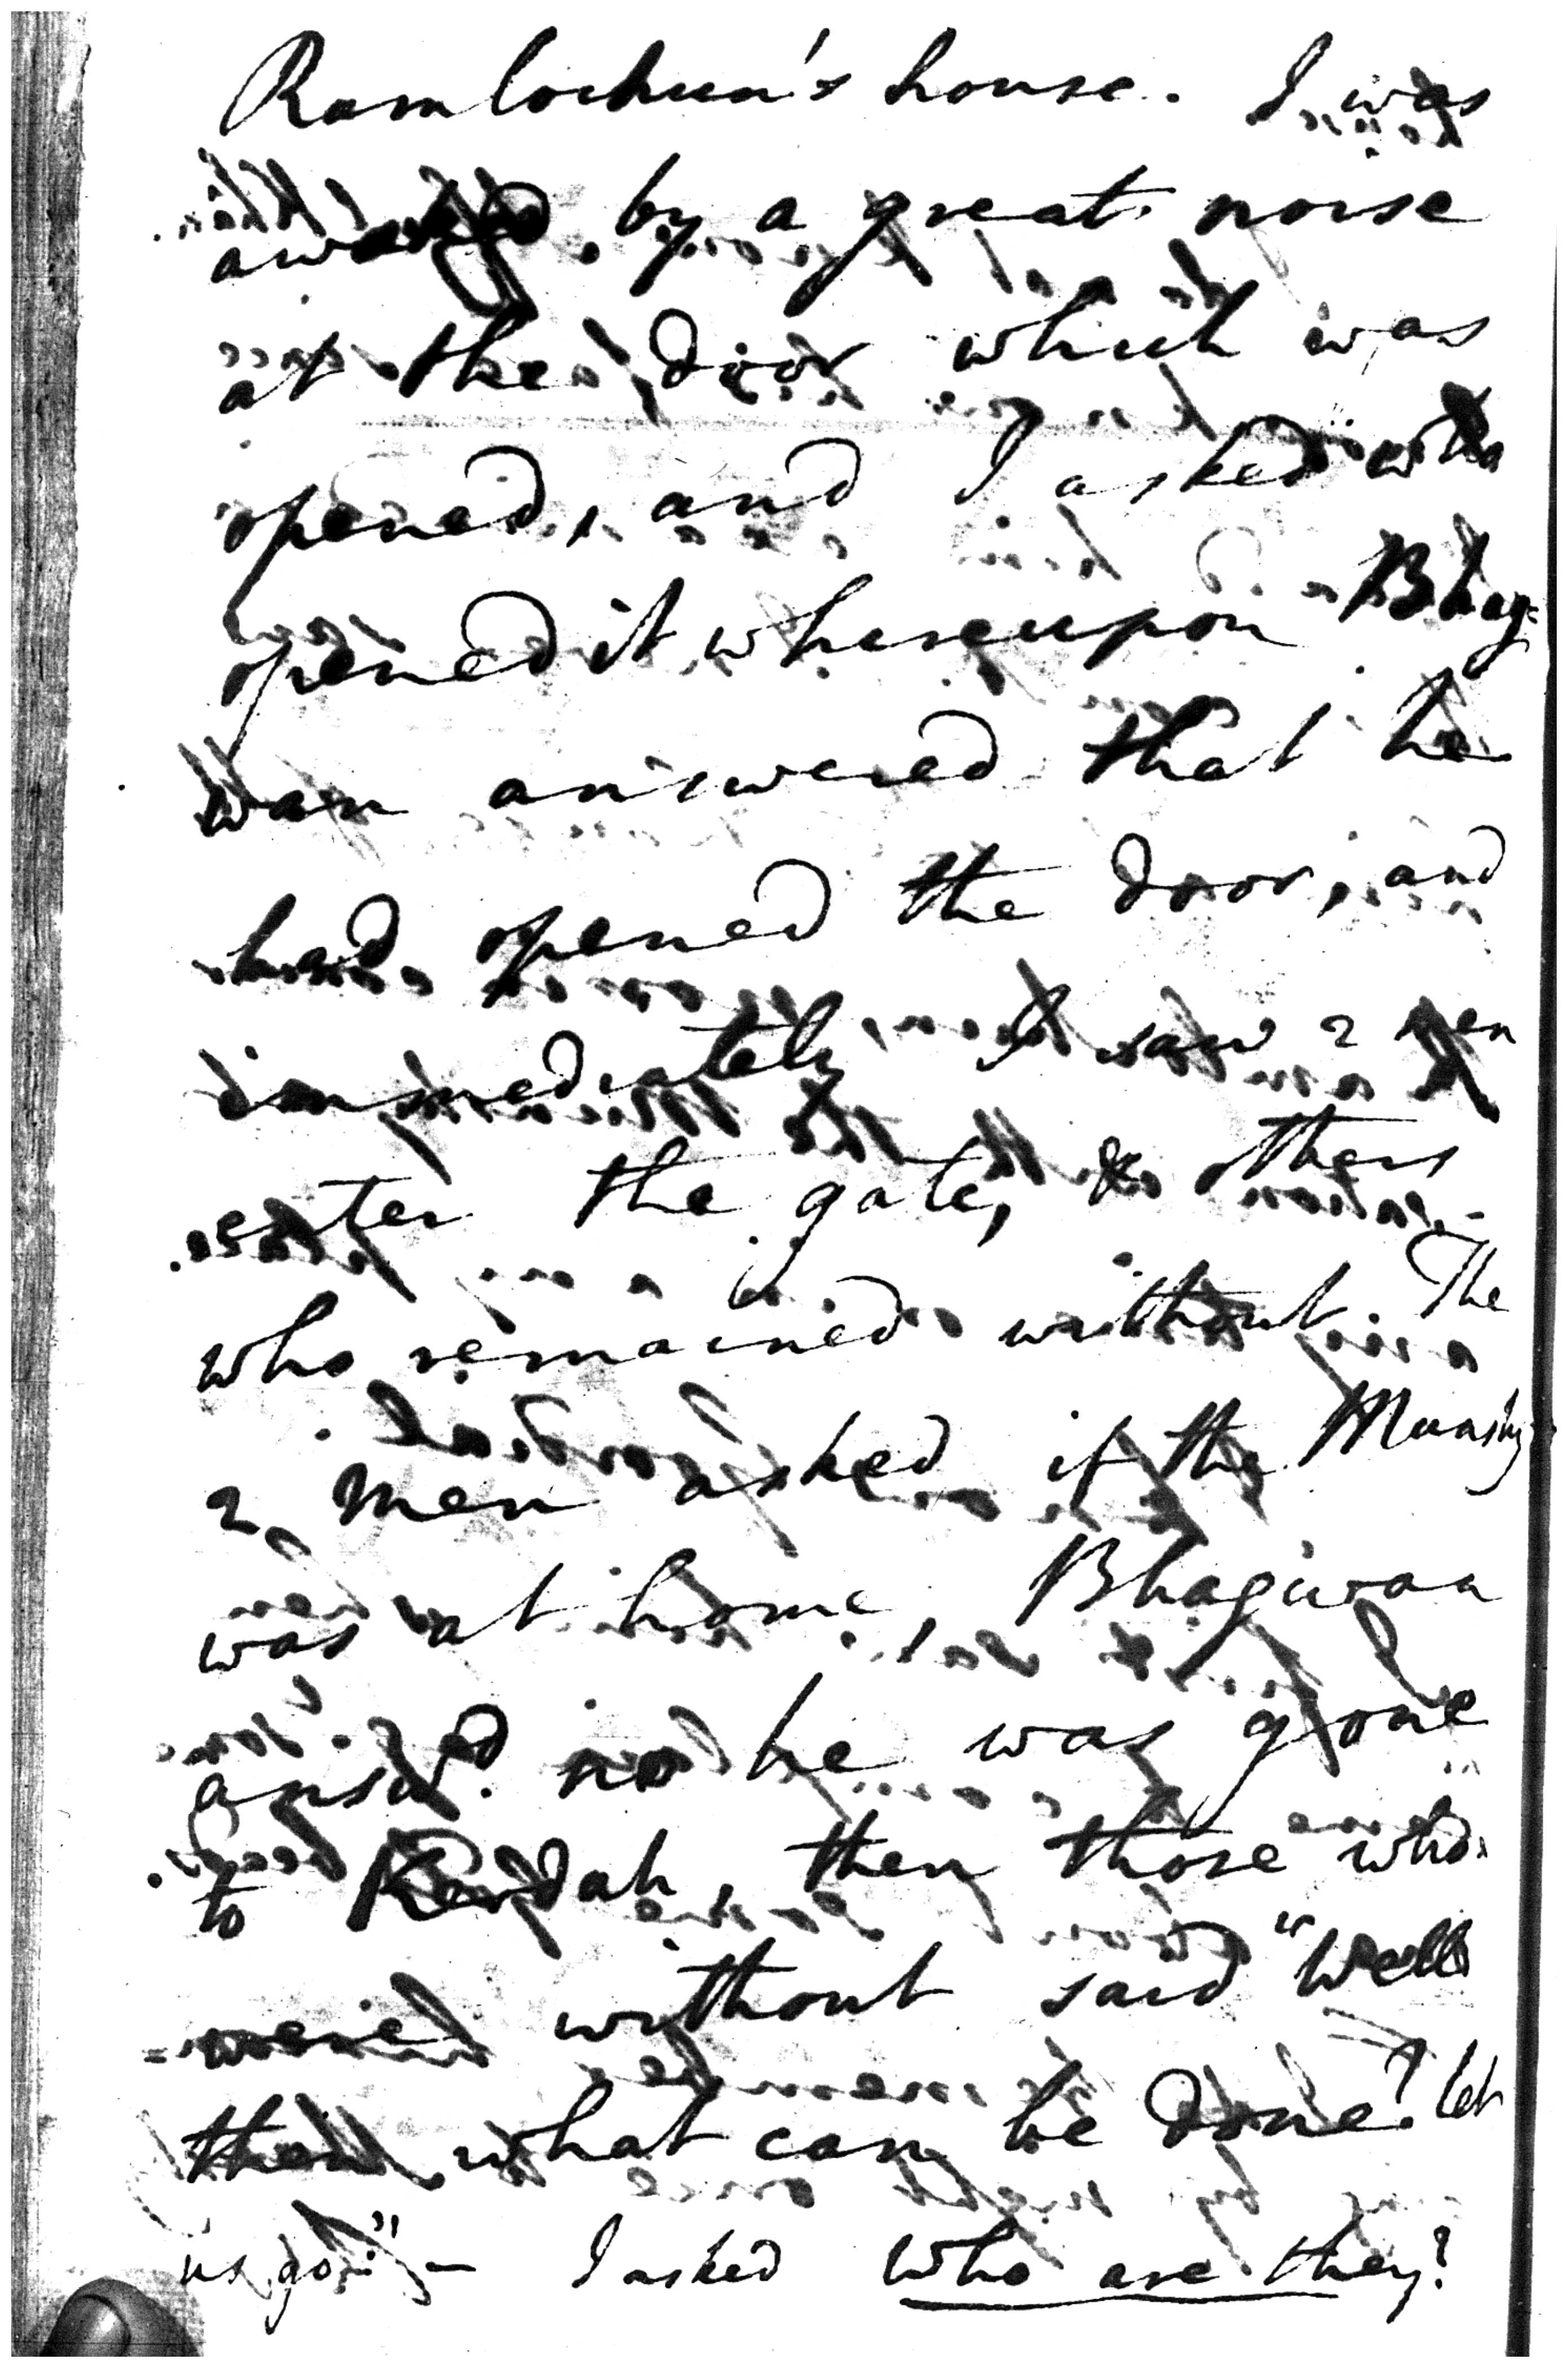 Ramlochun's house. I was
awaked by a great noise
at the door which was
opened, and I asked who
opened it whereupon Bhag=
wan answered that he
had opened the door, and
immediately I saw 2 men
enter the gate, & others
who remained without. The
2 men asked if the Munshy
was at home, Bhagwan
answd. no he was gone
to , then those who
were without said "Well
then what can be done? let
us go." – I asked who are they?